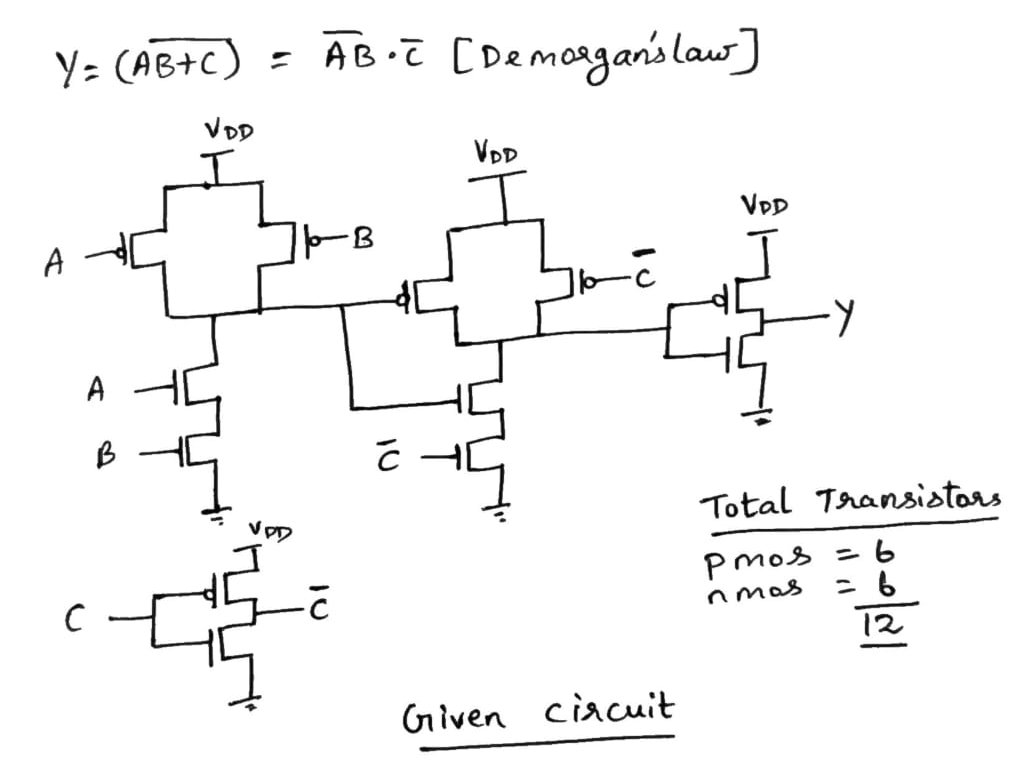 Y = (A̅B̅+̅C̅) = A̅B · C̅ [Demorgan's law]
VDD
VDD
VDD
A
B
C̅
Y
A
B
C̅
VDD
C
C̅
Total Transistors
pmos = 6
nmos = 6
12
Given circuit